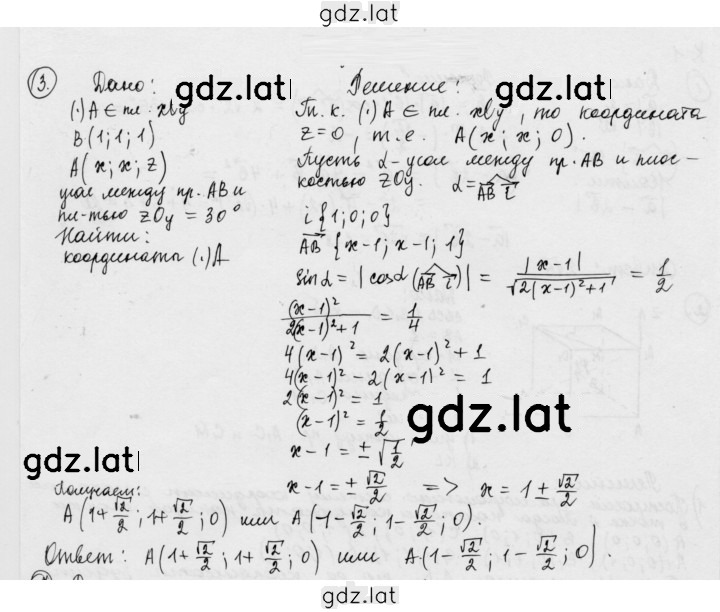 gdz.lat
3. Дано:
(·) A ∈ пл. xOy
B(1; 1; 1)
A(x; x; z)
угол между пр. AB и
пл-тью zOy = 30°
Найти:
координаты (·) A
gdz.lat
Решение:
gdz.lat
Т. к. (·) A ∈ пл. xOy, то координата
z=0, т.е. A(x; x; 0).
Пусть α - угол между пр. AB и плос-
костью zOy. α = AB i
i {1; 0; 0}
AB {x-1; x-1; 1}
sin α = |cos α (AB i)| = |x-1| / √2(x-1)²+1 = 1/2
(x-1)² / 2(x-1)²+1 = 1/4
4(x-1)² = 2(x-1)² + 1
4(x-1)² - 2(x-1)² = 1
2(x-1)² = 1
(x-1)² = 1/2
gdz.lat
x - 1 = ±√1/2
gdz.lat
x - 1 = ± √2/2 => x = 1 ± √2/2
Получаем:
A(1+√2/2; 1+√2/2; 0) или A(-1-√2/2; 1-√2/2; 0).
Ответ: A(1+√2/2; 1+√2/2; 0) или A(1-√2/2; 1-√2/2; 0).
gdz.lat